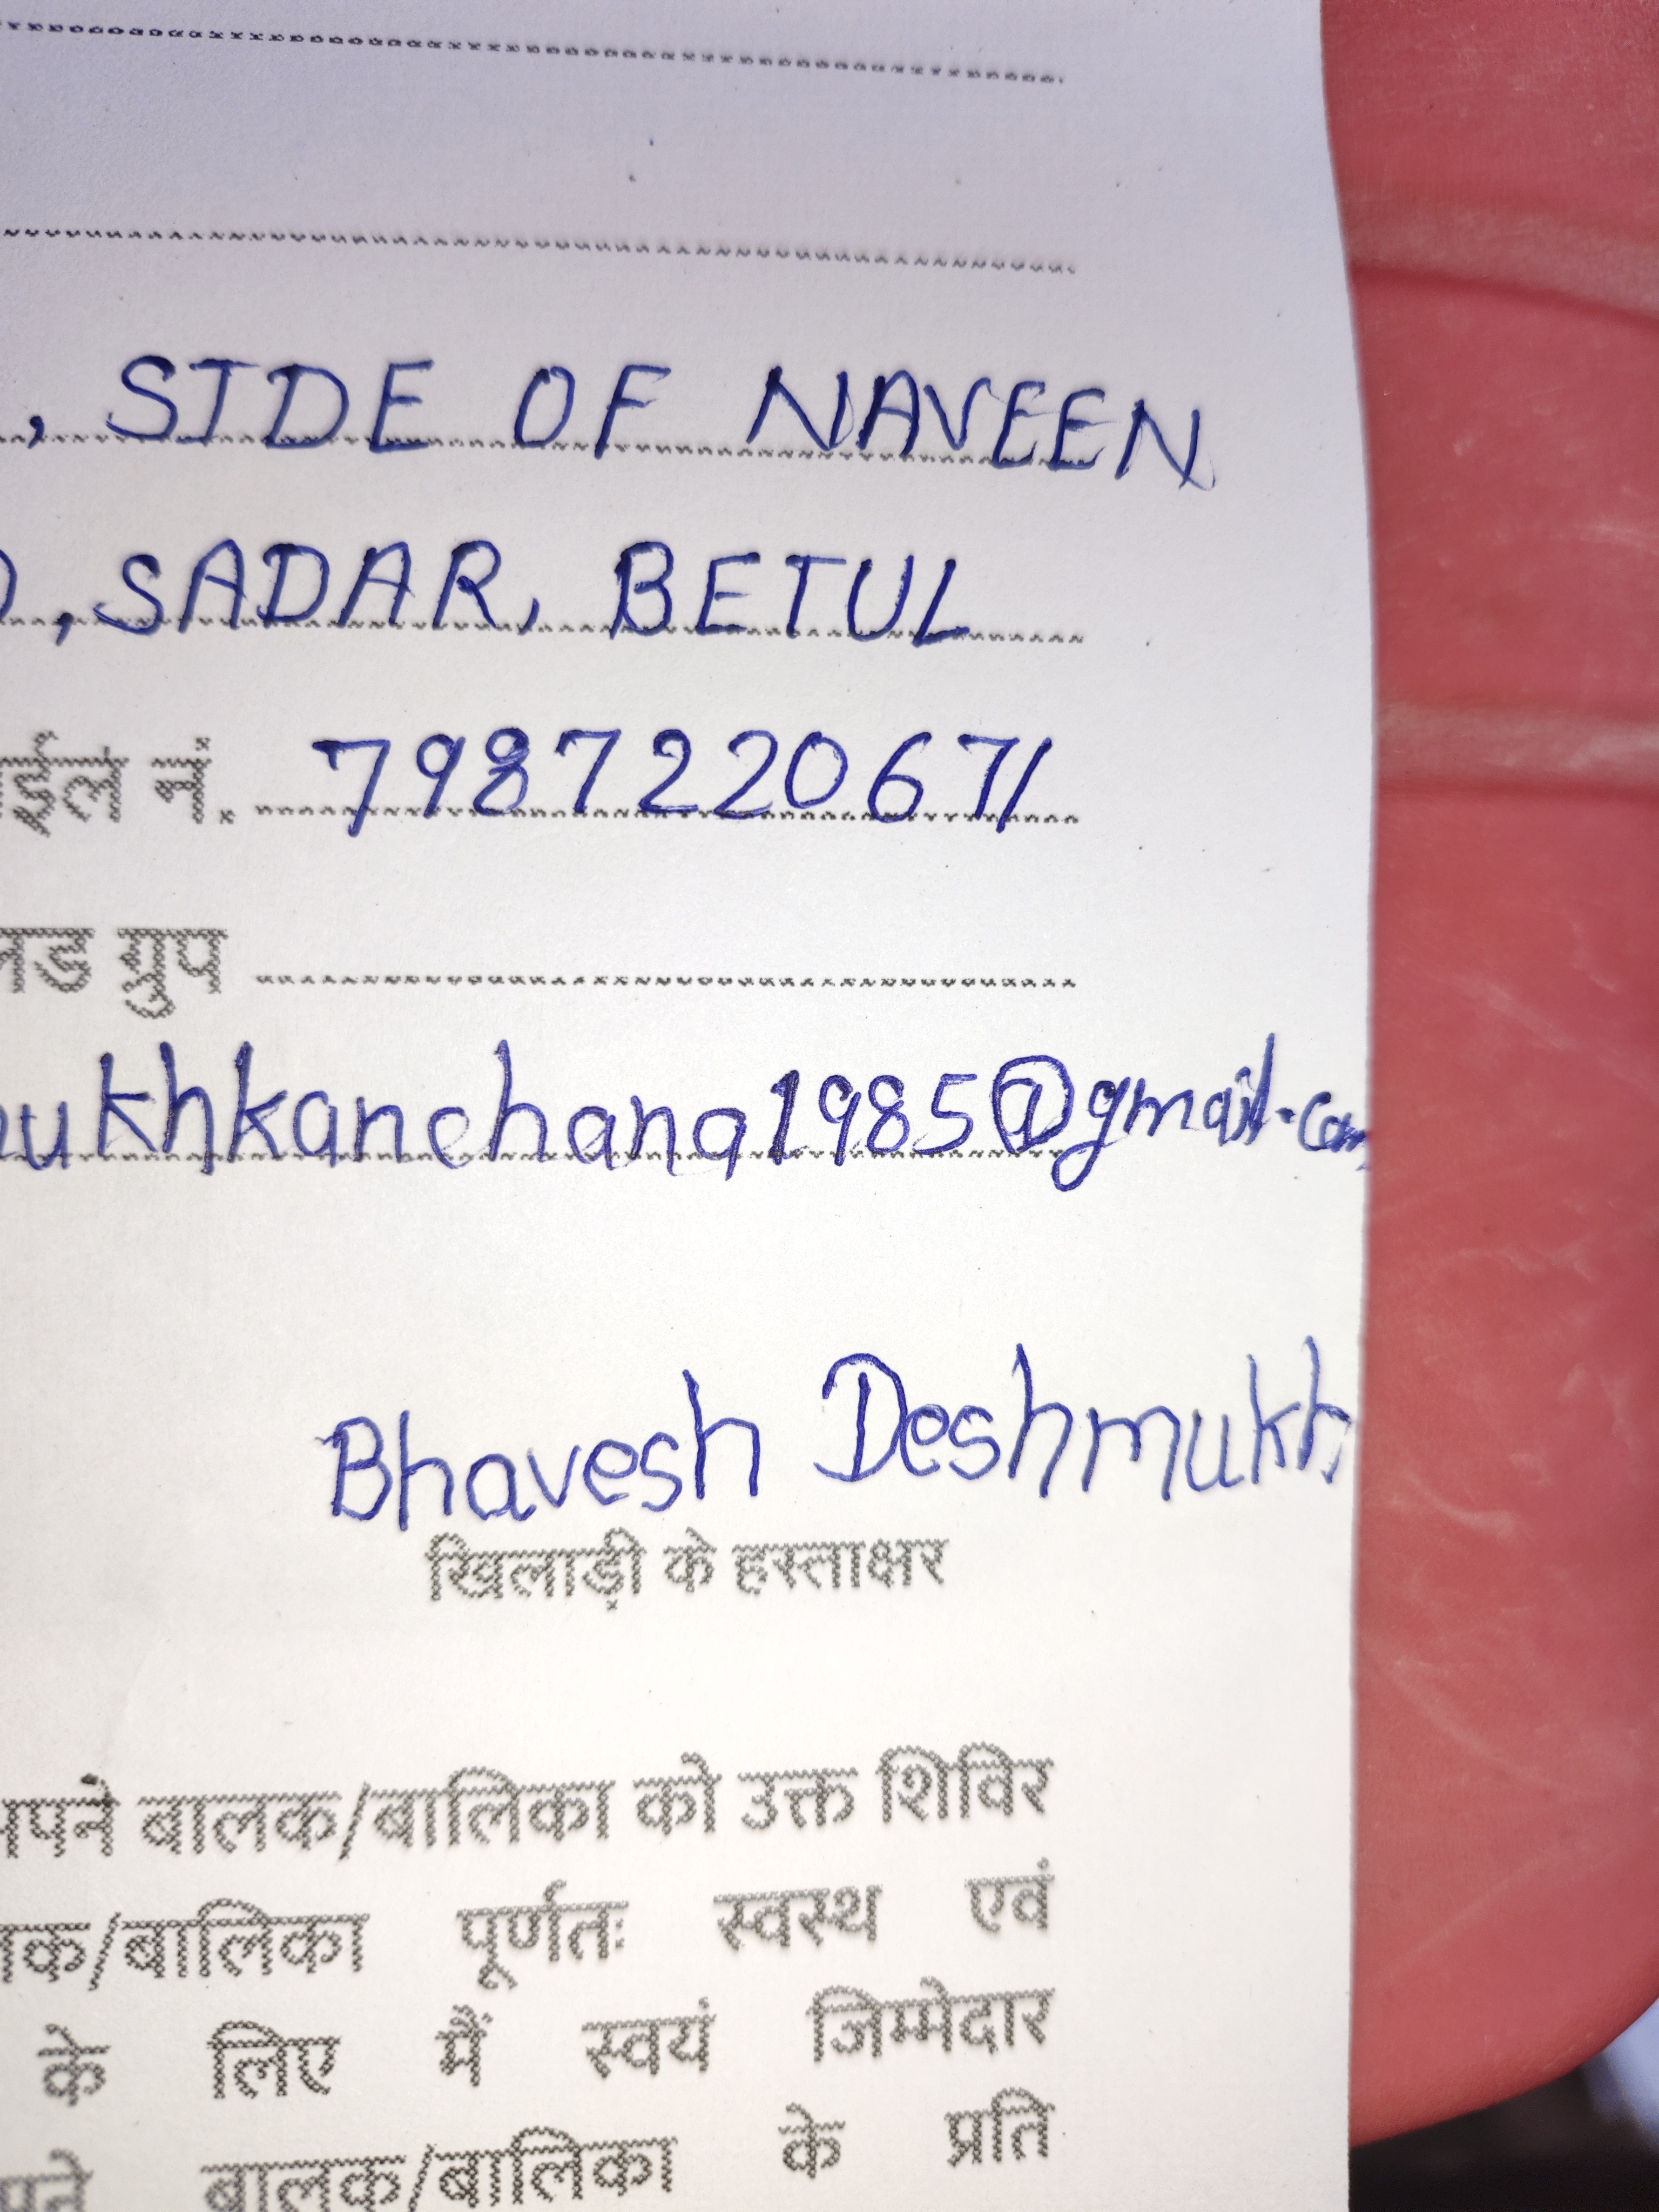 , SIDE OF NAVEEN
, SADAR, BETUL
नं. 7987220671
ग्रुप
ukhkanchana1985@gmail.com
Bhavesh Deshmukh
खिलाड़ी के हस्ताक्षर
अपने बालक/बालिका को उक्त शिविर
बालक/बालिका पूर्णतः स्वस्थ एवं
के लिए मैं स्वयं जिम्मेदार
बालक/बालिका के प्रति